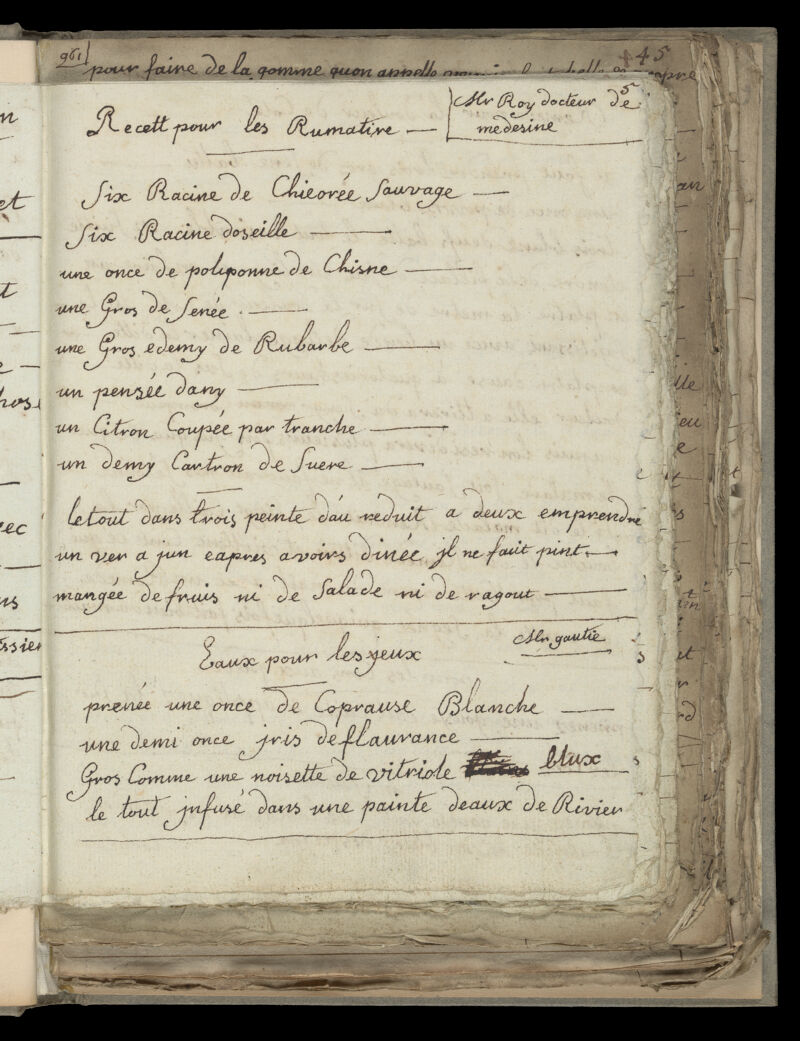 961
45
pour faire de la gomme quon appelle
5
Recett pour les Rumatire —
Mr Roy docteur de
medesine
Six Racine de Chicorée Sauvage —
Six Racine doseille —
une once de poliponne de Chisne —
une Gros de Senée . —
une Gros edemy de Rubarbe —
un pensée dany —
un Citron Coupée par tranche —
un demy Cartron de Sucre —
le tout dans trois peinte dáu reduit a deux emprendre
un ver a jun eapres avoirs dinée jl ne fait pint —
mangée de fruis ni de Salade ni de ragout —
Mr gautie
Eaux pour les yeux
prenée une once de Coprause Blanche —
une demi once jris deflaurance —
Gros Comme une noisette de vitriole blux
le tout jnfusé dans une painte deaux de Rivier